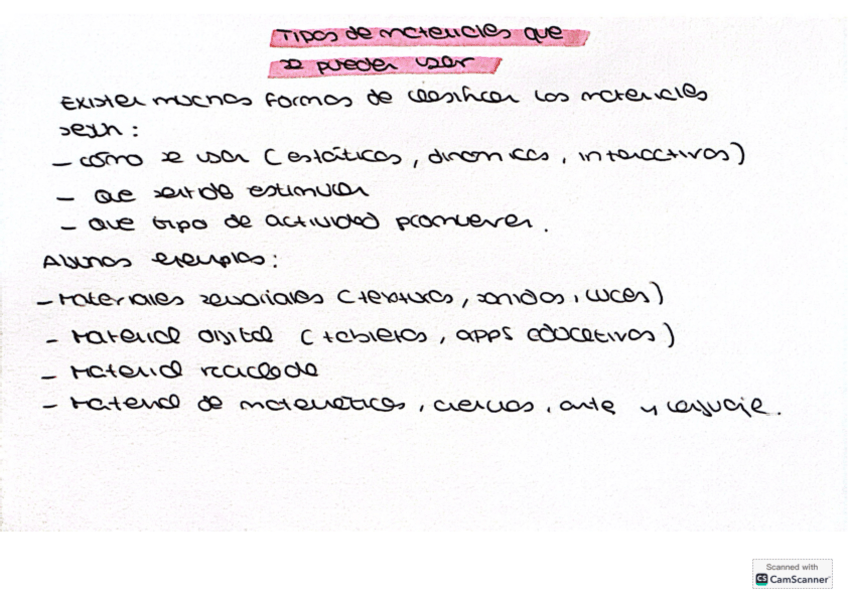 Tipos de materiales que
se pueden usar
Existen muchas formas de clasificar los materiales
según:
- cómo se usan (estáticos, dinámicos, interactivos)
- que sentido estimulan
- que tipo de actividad promueven.
Algunos ejemplos:
- Materiales sensoriales (texturas, sonidos, luces)
- Material digital (tabletas, apps educativas)
- Material reciclado
- Material de matemáticas, ciencias, arte y lenguaje.
Scanned with
CS CamScanner